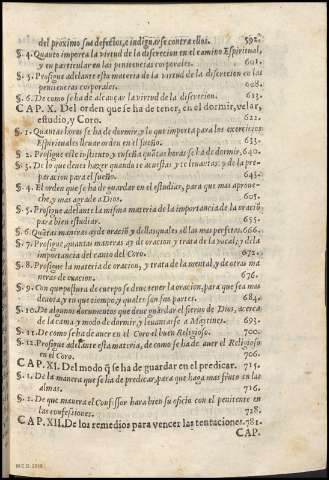 del proximo sus defectos, e indignarse contra ellos. 592.
§. 4. Quanto importa la virtud de la discrecion en el camino Espiritual,
y en particular en las penitencias corporales. 601.
§. 5. Prosigue adelante esta materia de la virtud de la discrecion en las
penitencias corporales. 608.
§. 6. De como se ha de alcançar la virtud de la discrecion. 613.
CAP. X. Del orden que se ha de tener, en el dormir, velar,
estudio, y Coro. 622.
§. 1. Quantas horas se ha de dormir, y lo que importa para los exercicios
Espirituales llevar orden en el sueño. 633.
§. 2. Prosigue este instituto, y enseña quãtas horas se ha de dormir. 640.
§. 3. De lo que deves hazer quando te acuestas, y te levantas: y de la pre-
paracion para el sueño. 643.
§. 4. El orden que se ha de guardar en el estudiar, para que mas aprove-
che, y mas agrade a Dios. 605.
§. 5. Prosigue adelante la misma materia de la importancia de la oraciõ
para bien estudiar. 655.
§. 6. Quãtas maneras ay de oraciõ y de las quales sõ las mas perfetas. 666.
§. 7. Prosigue, quantas maneras ay de oracion, y trata de la vocal, y de la
importancia del canto del Coro. 672.
§. 8. Prosigue la materia de oracion, y trata de la mental, y de otras ma
neras de oracion. 676.
§. 9. Con que postura de cuerpo se deve tener la oracion, para que sea mas
devota, y en que tiempo, y quales son sus partes. 684.
§. 10. De algunos documentos que deve guardar el siervo de Dios, acerca
de la cama, y modo de dormir, y levantarse a Maytines. 693.
§. 11. De como se ha de aver en el Coro el buen Religioso. 700.
§. 12. Prosigue adelante esta materia, de como se ha de aver el Religioso
en el Coro. 706.
CAP. XI. Del modo q̃ se ha de guardar en el predicar. 715.
§. 1. De la manera que se ha de predicar, para que haga mas fruto en las
almas. 716.
§. 2. De que manera el Confessor hara bien su oficio con el penitente en
las confessiones. 728.
CAP. XII. De los remedios para vencer las tentaciones. 781.
CAP.